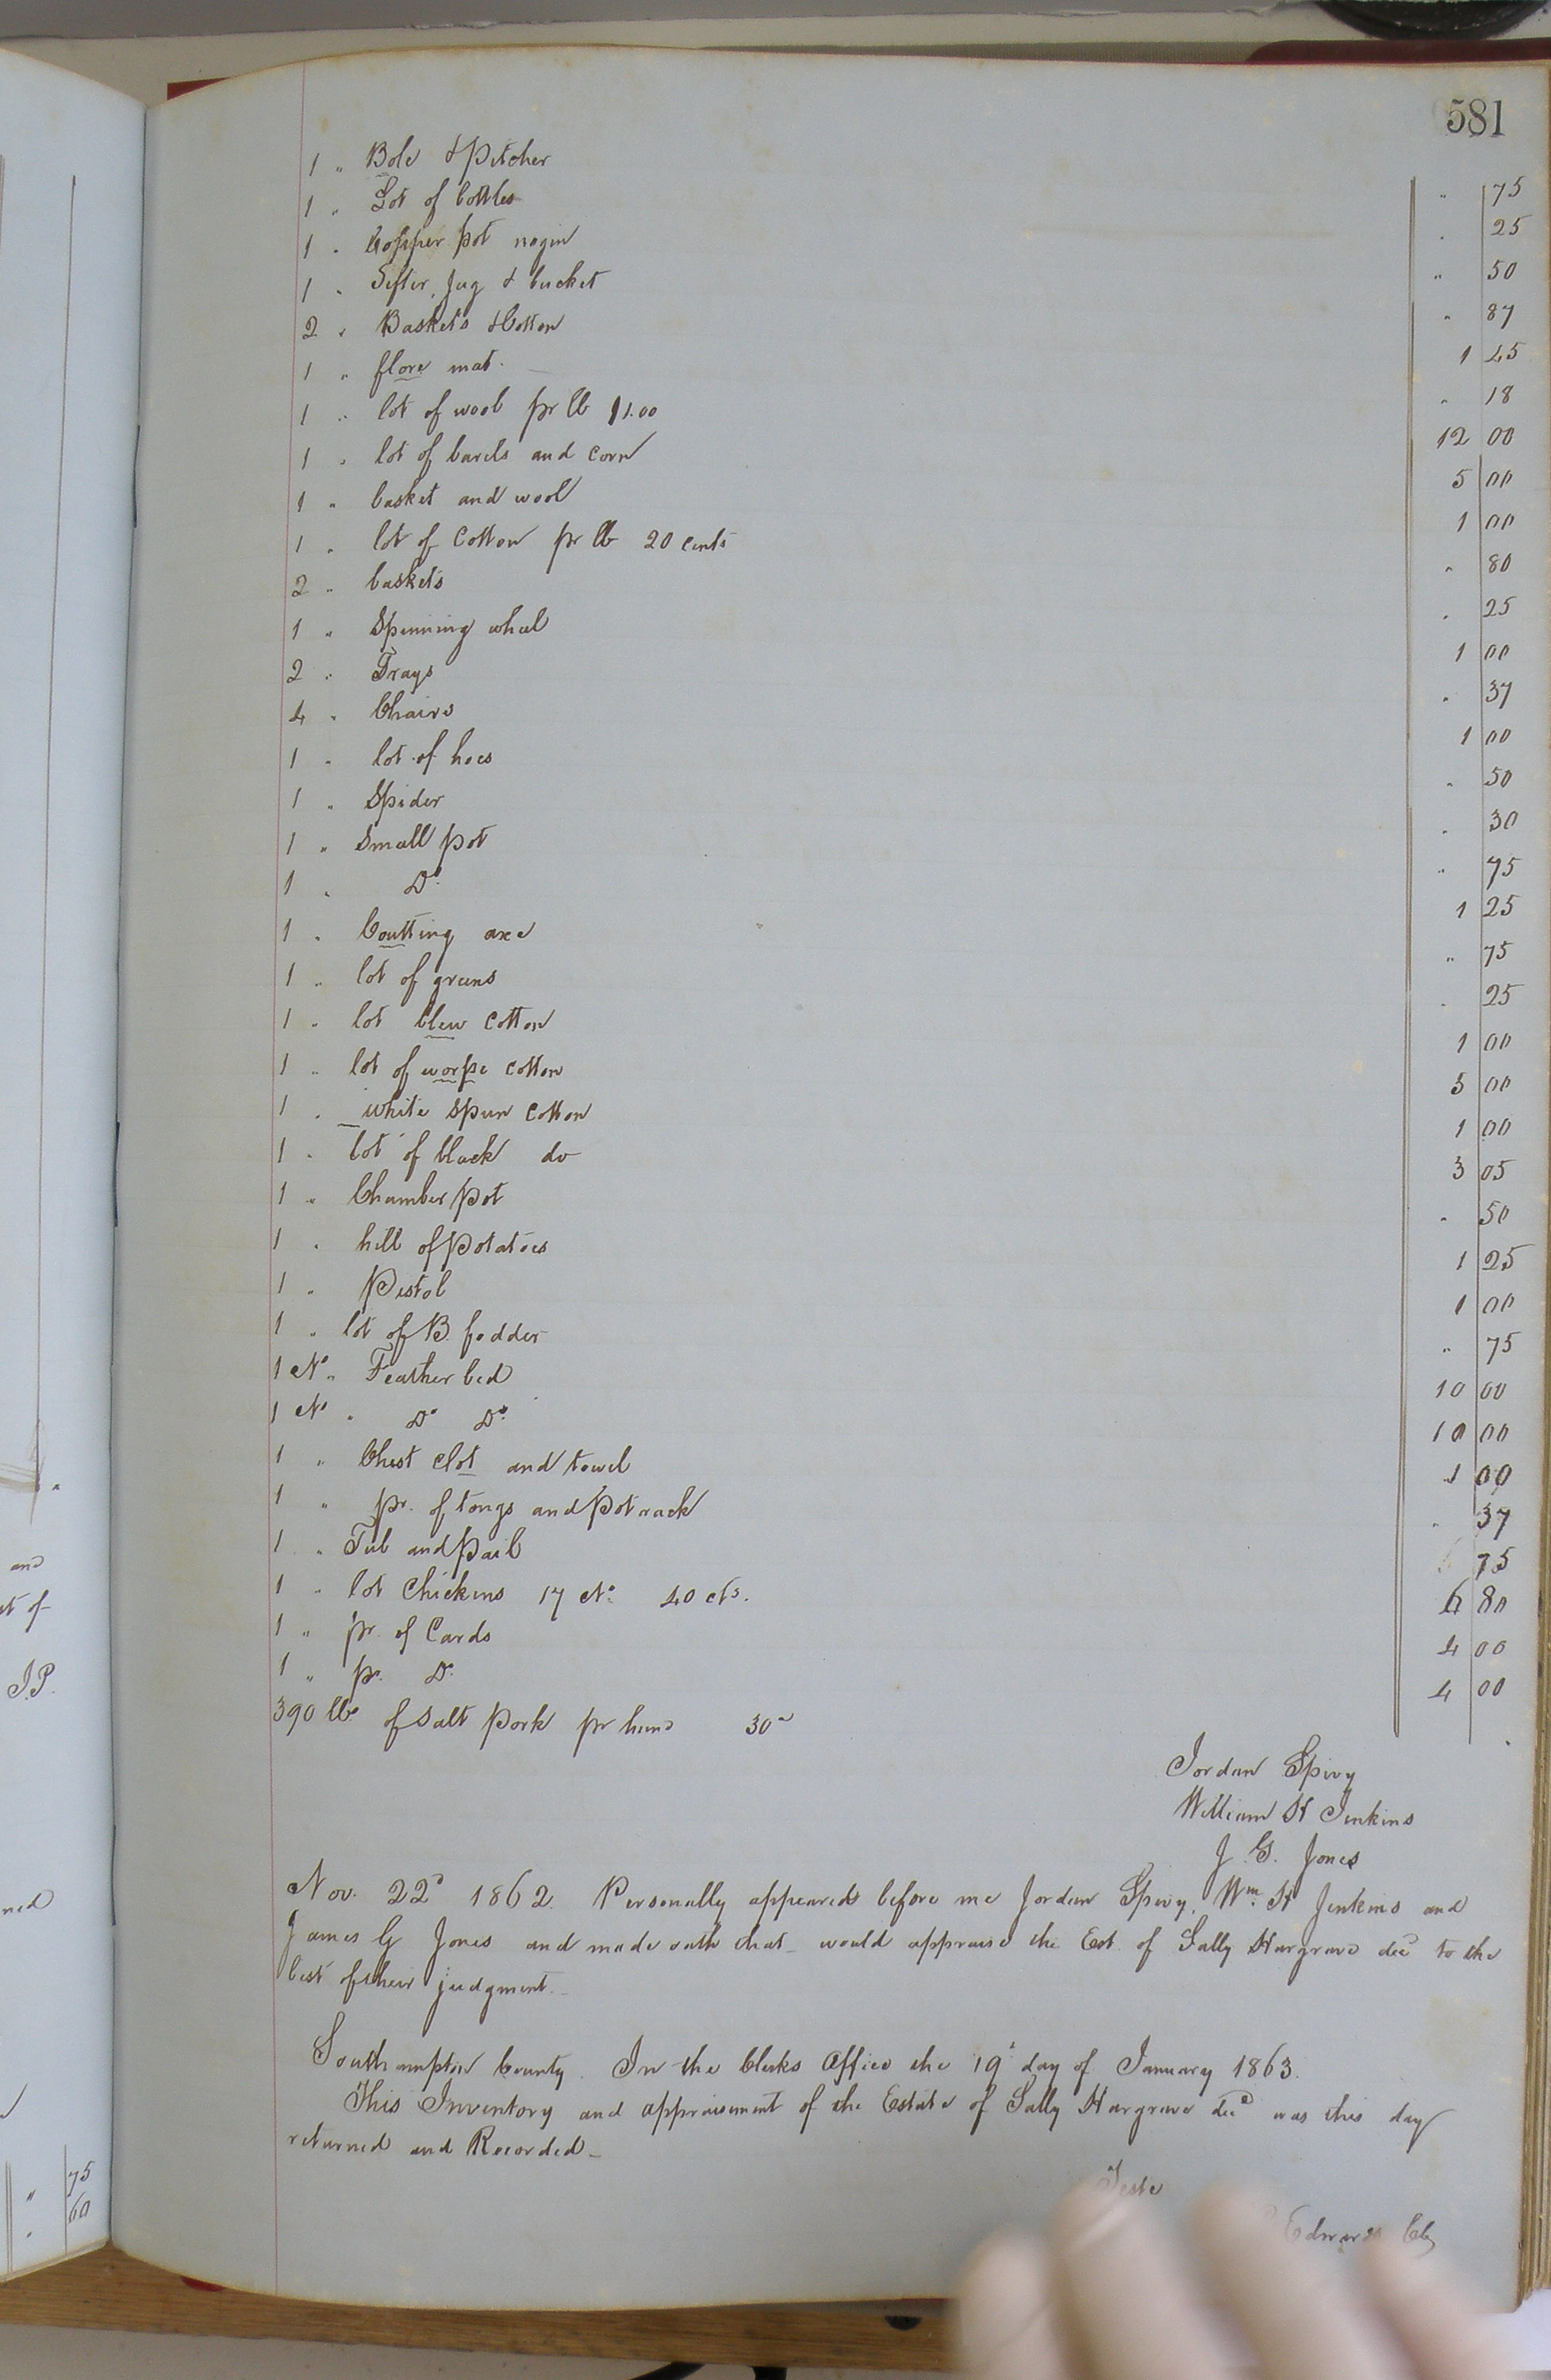 581
1 " Bole & Pitcher " 75
1 " Lot of bottles " 25
1 " Copper pot nogin " 50
1 " Sifter, Jug & bucket " 87
2 " Baskets & Cotton 1 45
1 " flore mat. " 18
1 " lot of wool pr lb $1.00 12 00
1 " lot of barels and corn 5 00
1 " basket and wool 1 00
1 " lot of Cotton pr lb 20 cents " 80
2 " baskets " 25
1 " Spinning wheel 1 00
2 " Trays " 37
4 " Chairs 1 00
1 " lot of hoes " 50
1 " Spider " 30
1 " Small pot " 75
1 " Do. 1 25
1 " Coutting axe " 75
1 " lot of greens " 25
1 " lot blew Cotton 1 00
1 " lot of worpe cotton 5 00
1 " white spun Cotton 1 00
1 " lot of black do 3 05
1 " Chamber Pot " 50
1 " hill of Potatoes 1 25
1 " Pistol 1 00
1 " lot of B. fodder " 75
1 No " Feather bed 10 00
1 No " Do Do. 10 00
1 " Chest clot and towel 1 00
1 " pr. of tongs and Pot rack " 37
1 " Tub and Pail 75
1 " lot Chickins 17 No. 40 cts. 6 80
1 " pr. of Cards 4 00
1 " pr. Do. 4 00
390 lbs of Salt Pork pr hund 30
Jordan Spivy
William H Jenkins
J. G. Jones
Nov. 22d 1862. Personally appeared before me Jordan Spivy, Wm. H Jenkins and
James G Jones and made oath that would appraise the Est. of Sally Hargrave decd to the
best of their judgment.
Southampton County. In the Clerks Office the 19th day of January 1863.
This Inventory and appraisement of the Estate of Sally Hargrave decd was this day
returned and Recorded
Teste
Edwards Clk
and
of
J.P.
" 75
" 60